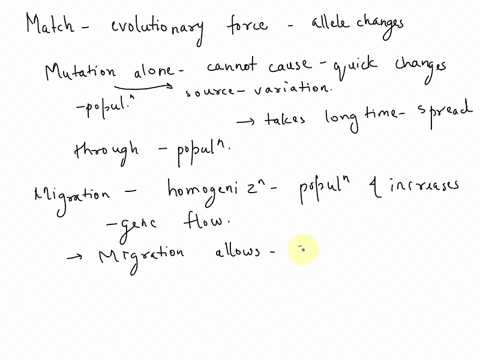 Match - evolutionary force - allele changes
Mutation alone - cannot cause - quick changes
-popul.ⁿ source - variation.
→ takes long time - spread
through - populⁿ.
Migration - homogenizⁿ - populⁿ & increases
- gene flow.
→ Migration allows -